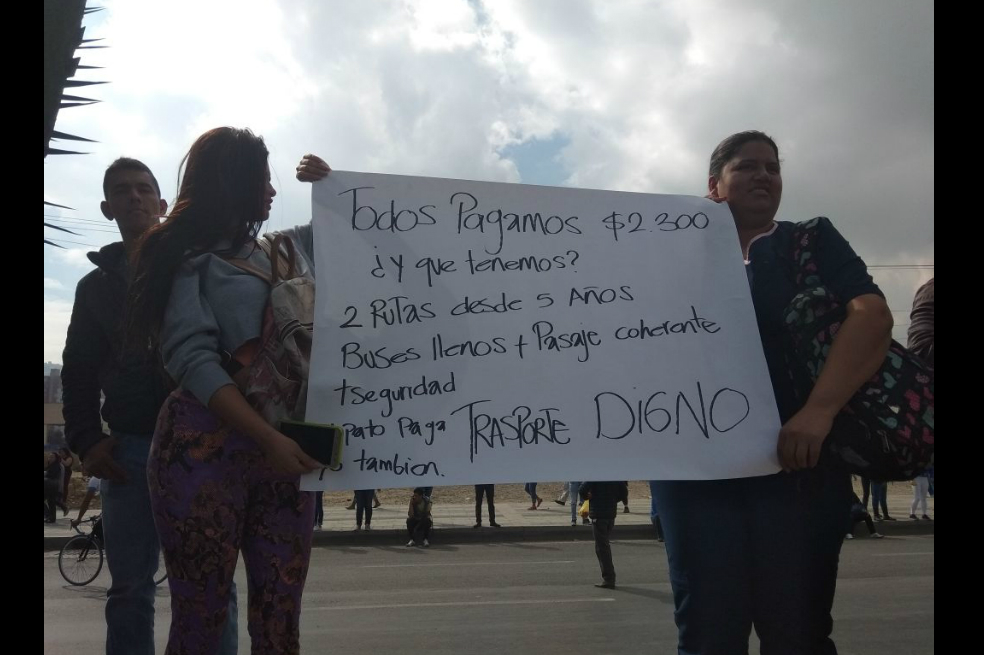 Todos Pagamos $2.300
¿Y que tenemos?
2 RUTAS desde 5 Años
Buses llenos + Pasaje coherente
+seguridad
Pato Paga TRASPORTE DIGNO
tambion.